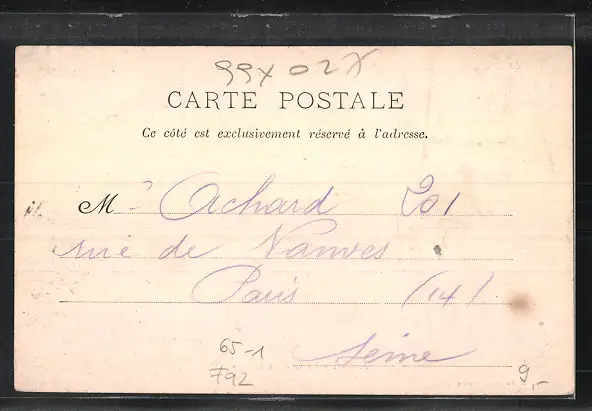 99X02X
CARTE POSTALE
Ce côté est exclusivement réservé à l'adresse.
M Achard 201
rue de Vanves
Paris (14)
65-1 Seine
F92 9,-